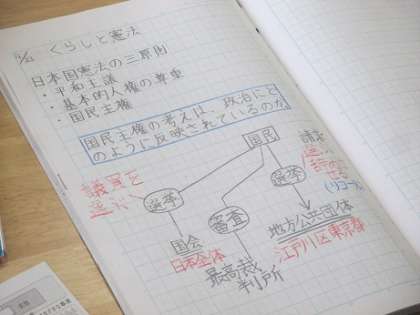 くらしと憲法
日本国憲法の三原則
・平和主義
・基本的人権の尊重
・国民主権
国民主権の考えは、政治にど
のように反映されているのか
国民
議員を
選ぶ
選挙
国会
日本全体
審査
最高裁
判所
選挙
請求
選ぶ
辞めさせる
(リコール
地方公共団体
江戸川区東京都